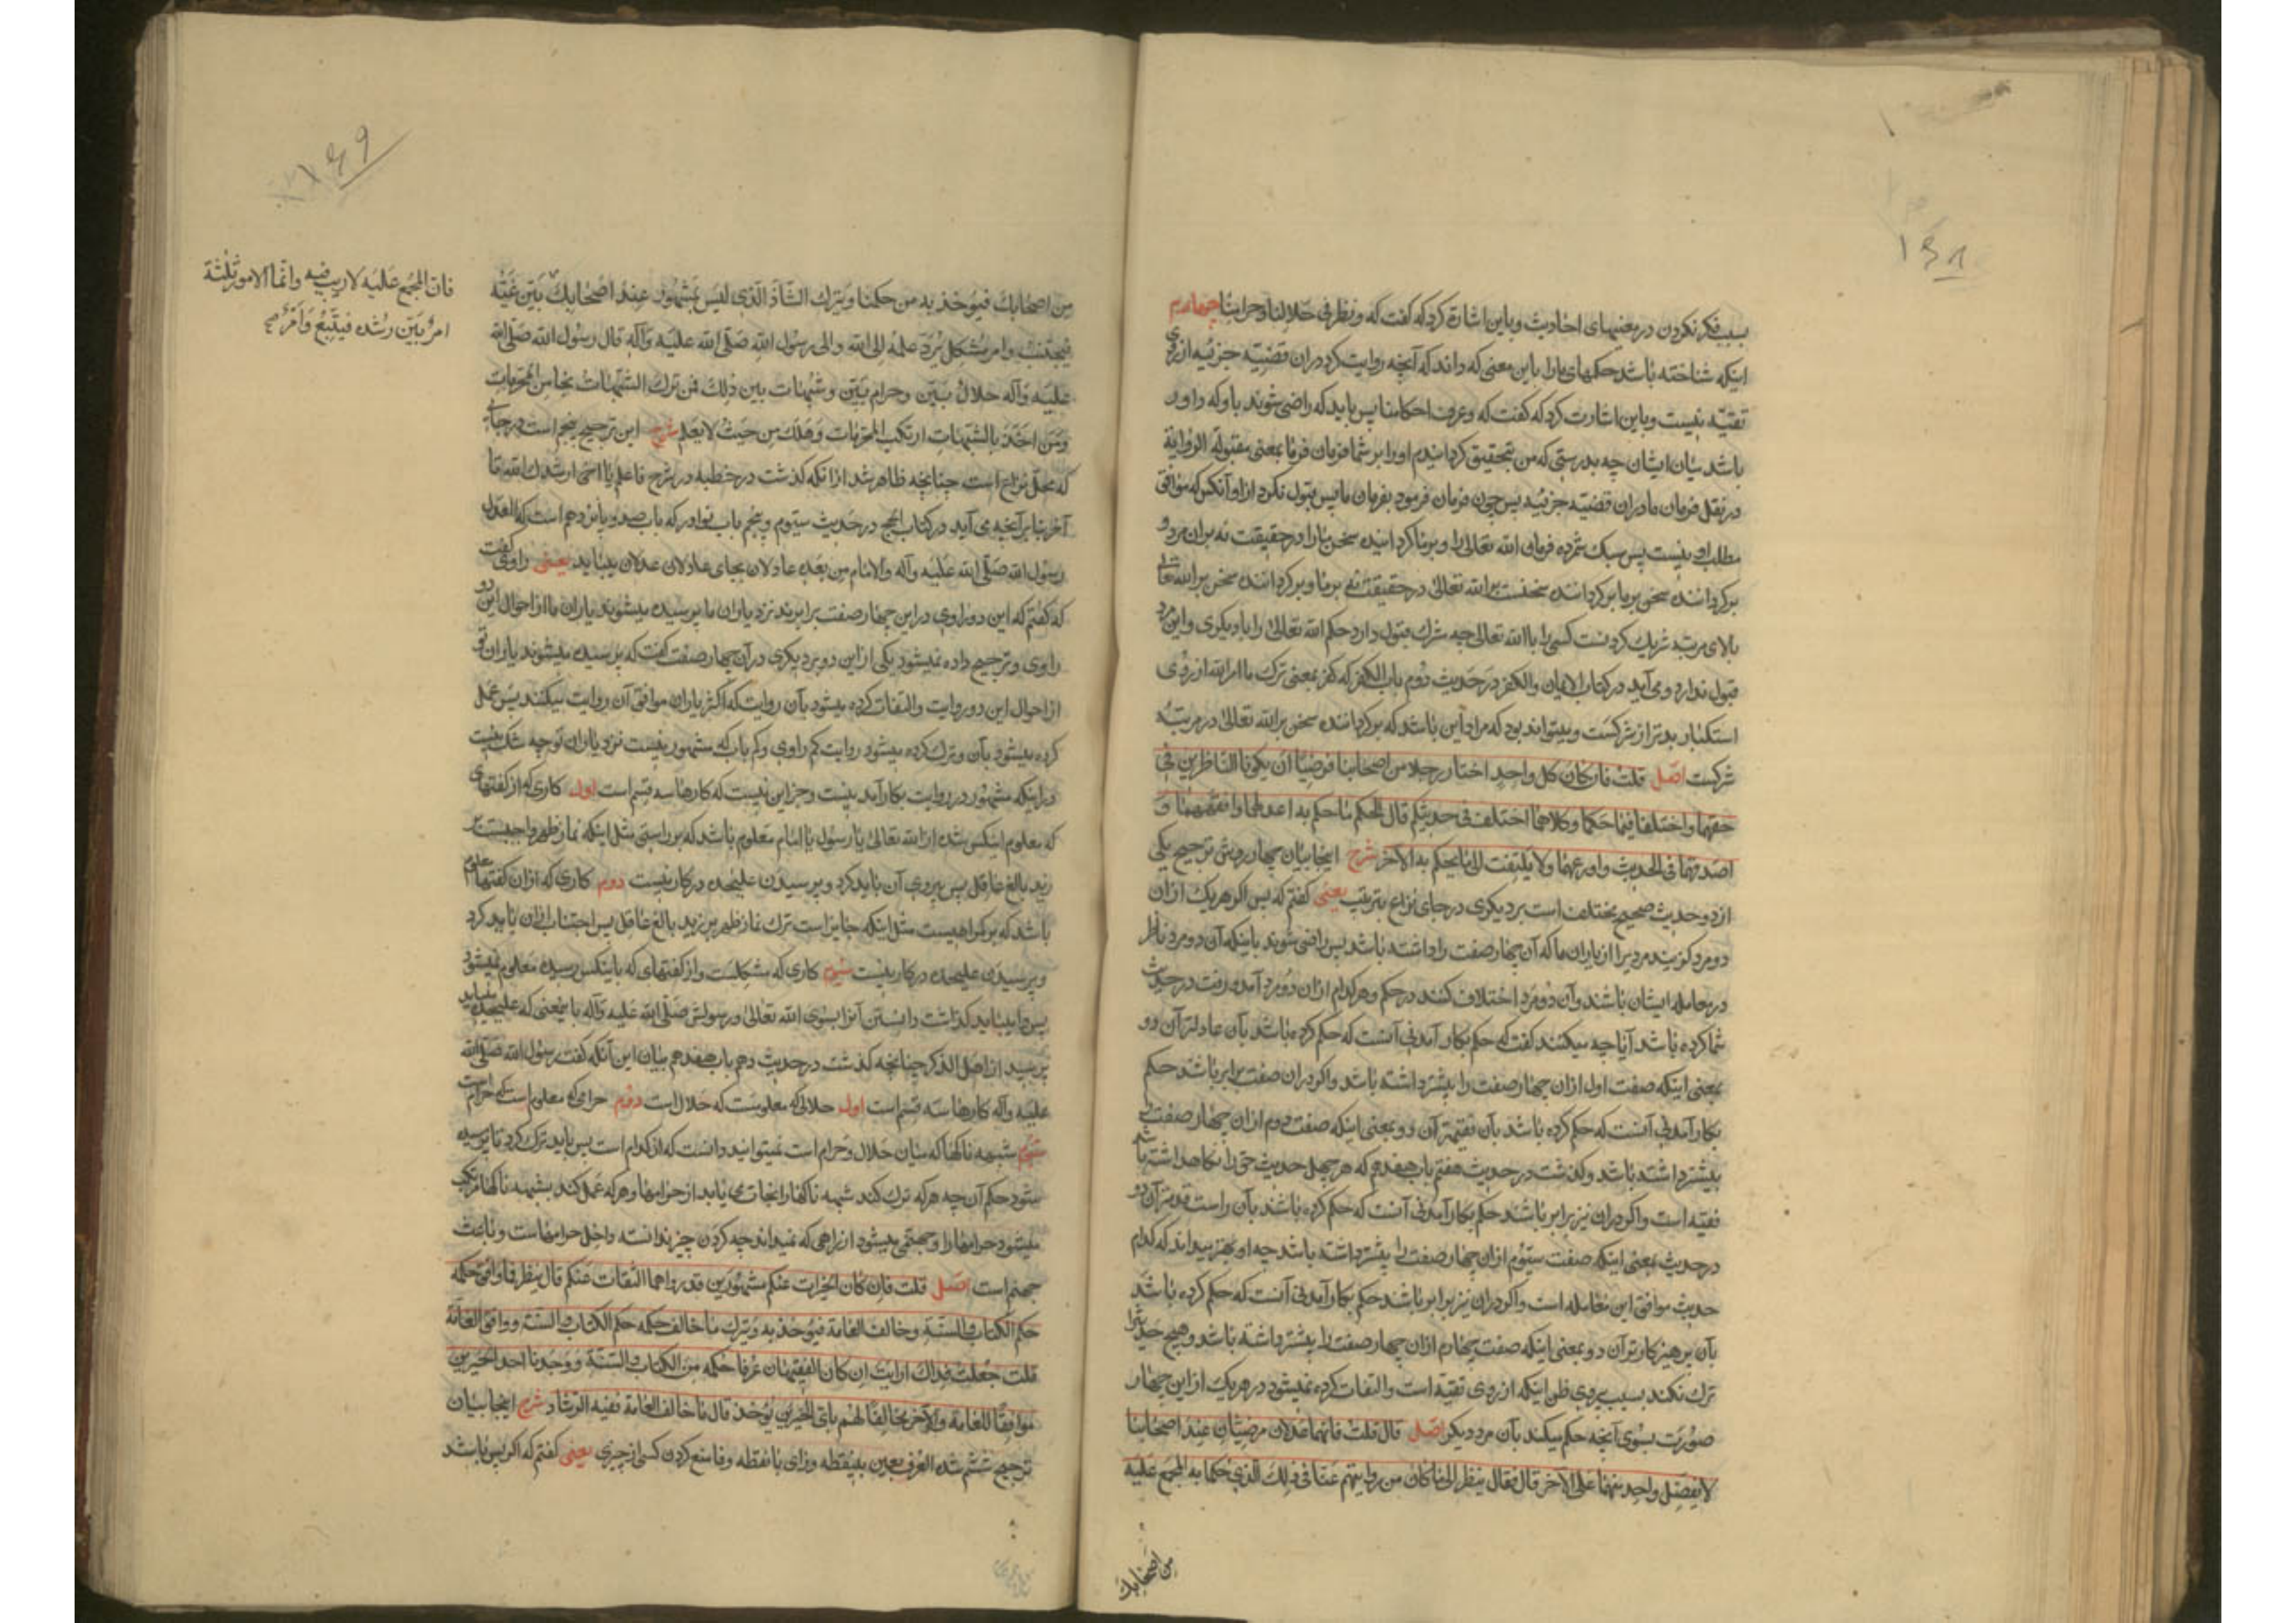 ۱۴۸
سبب فکر نکردن در معنیهای احادیث و باین اشارة کرد که گفت که و نظر فی حلالنا و حرامنا چهارم
اینکه شناخته باشد حکمهای ما را باین معنی که داند که آنچه روایت کرد در ان قضیّه جزئیه از روی
تقیّه نیست و باین اشارت کرد که گفت که و عرف احکامنا پس باید که راضی شوند باو که داور
باشد میان ایشان چه بدرستی که من تحقیق گردانیدم او را بر شما فرمان فرما بمعنی مقبولة الروایة
در نقل فرمان ما در ان قضیّه جزئیه پس چون فرمان فرمود بفرمان ما پس قبول نکرد از او آنکس که موافق
مطلب او نیست پس سبک شمرده فرمان الله تعالی را و بر ما گردانیده سخن ما را و در حقیقت نه بران مرد و
برگرداننده سخن بر ما برگرداننده سخنست بر الله تعالی در حقیقت نه بر ما و برگرداننده سخن بر الله تعالی
بالای مرتبه شریک کردنست کسی را با الله تعالی چه شرک قبول دارد حکم الله تعالی را با دیگری و این مرد
قبول ندارد و می آید در کتاب الایمان و الکفر در حدیث دوم باب الکفر که کفر بمعنی ترک ما امر الله از روی
استکبار بدتر از شرکست و میتواند بود که مراد این باشد که برگرداننده سخن بر الله تعالی در مرتبهٔ
شرکست اصل قلت فان کان کل واحد اختار رجلا من اصحابنا فرضیا ان یکونا الناظرین فی
حقهما و اختلفا فیما حکما و کلاهما اختلف فی حدیثکم قال الحکم ما حکم به اعدلهما و افقههما و
اصدقهما فی الحدیث و اورعهما و لا یلتفت الی ما یحکم به الآخر شرح اینجا بیان چهار روش ترجیح یکی
از دو حدیث صحیح مختلف است بر دیگری در جای نزاع بترتیب یعنی گفتم که پس اگر هر یک از ان
دو مرد گزیند مردیرا از یاران ما که آن چهار صفت را داشته باشد پس راضی شوند باینکه آن دو مرد ناظر
در معامله ایشان باشند و آن دو مرد اختلاف کنند در حکم و هر کدام از ان دو مرد آمد و رفت در حدیث
شما کرده باشد آیا چه میکنند گفت که حکم بکار آمدنی آنست که حکم کرده باشد بآن عادلتر آن دو
بمعنی اینکه صفت اول از ان چهار صفت را بیشتر داشته باشد و اگر در ان صفت برابر باشد حکم
بکار آمدنی آنست که حکم کرده باشد بآن فقیهتر آن دو بمعنی اینکه صفت دوم از ان چهار صفت را
بیشتر داشته باشد و گذشت در حدیث هفتم باب هفدهم که هر چهل حدیث حق را نگاه داشته باشد
فقیه است و اگر در ان نیز برابر باشند حکم بکار آمدنی آنست که حکم کرده باشند بآن راست گوتر آن دو
در حدیث بمعنی اینکه صفت سیّوم از ان چهار صفت را بیشتر داشته باشد چه او بهتر میداند که کدام
حدیث موافق این معامله است و اگر در ان نیز برابر باشند حکم بکار آمدنی آنست که حکم کرده باشد
بآن پرهیزکارتر آن دو بمعنی اینکه صفت چهارم از ان چهار صفت را بیشتر داشته باشد و هیچ حدیث را
ترک نکند بسبب پیروی ظن اینکه از روی تقیّه است و التفات کرده نمیشود در هر یک از این چهار
صورت بسوی آنچه حکم میکند بآن مرد دیگر اصل قال قلت فانهما عدلان مرضیّان عند اصحابنا
لا یفضل واحد منهما علی الآخر قال فقال ینظر الی ما کان من روایتهم عنا فی ذلک الذی حکما به المجمع علیه
من اصحابک
۱۴۹
من اصحابک فیؤخذ به من حکمنا و یترک الشّاذ الّذی لیس بمشهور عند اصحابک بیّن غیّه
فان المجمع علیه لا ریب فیه و انّما الامور ثلثة
امر بیّن رشده فیتّبع و امر صح
فیجتنب و امر مشکل یردّ علمه الی الله و الی رسول الله صلّی الله علیه و آله قال رسول الله صلّی الله
علیه و آله حلال بیّن و حرام بیّن و شبهات بین ذلک فمن ترک الشّبهات نجا من المحرّمات
و من اخذ بالشبهات ارتکب المحرّمات و هلک من حیث لا یعلم شرح این ترجیح پنجم است در جایی
که محلّ نزاع است چنانچه ظاهر شد از انکه گذشت در خطبه در شرح فاعلم یا اخی ارشدک الله تا
آخر بنابر آنچه می آید در کتاب الحج در حدیث سیّوم و پنجم باب نوادر که باب صد و پانزدهم است که العدل
رسول الله صلّی الله علیه و آله و الامام من بعده عادلان بجای عادلان عدلان میباید یعنی راوی گفت
که گفتم که این دو راوی در این چهار صفت برابرند نزد یاران ما پرسیده میشوند یاران ما از احوال این دو
راوی و ترجیح داده نمیشود یکی از این دو بر دیگری در آن چهار صفت گفت که پرسیده میشوند یاران تو
از احوال این دو روایت و التفات کرده میشود بآن روایت که اکثر یاران موافق آن روایت میکنند پس عمل
کرده میشود بآن و ترک کرده میشود روایت کم راوی و کم یاب که مشهور نیست نزد یاران تو چه شک نیست
در اینکه مشهور در روایت بکار آمدنیست و جز این نیست که کارها سه قسم است اول کاری که از گفتهای
که معلوم اینکس شده از الله تعالی یا رسول یا امام معلوم باشد که بر راستی مثل اینکه نماز ظهر واجبست بر
زید بالغ عاقل پس پیروی آن باید کرد و پرسیدن علیحده در کار نیست دوم کاری که از ان گفتها معلوم
باشد که بر گمراهیست مثل اینکه جایز است ترک نماز ظهر بر زید بالغ عاقل پس اجتناب از ان باید کرد
و پرسیدن علیحده در کار نیست سیّوم کاری که مشکلست و از گفتهای که باینکس رسیده معلوم نمیشود
پس وا میباید گذاشت دانستن آنرا بسوی الله تعالی و رسولش صلّی الله علیه و آله باینمعنی که علیحده میباید
پرسید از اهل الذکر چنانچه گذشت در حدیث دهم باب هفدهم بیان این آنکه گفت رسول الله صلّی الله
علیه و آله کارها سه قسم است اول حلالی که معلومست که حلال است دوّم حرامی که معلوم است که حرام است
سیّوم شبهه ناکها که میان حلال و حرام است نمیتوانید دانست که از کدام است پس باید ترک کرد تا پرسیده
شود حکم آن چه هر که ترک کند شبهه ناکها را نجات می یابد از حرامها و هر که عمل کند بشبهه ناکها مرتکب
میشود حرامها را و جهنمی میشود از راهی که نمیداند چه کردن چیز ندانسته داخل حرامهاست و باعث
جهنم است اصل قلت فان کان الخبران عنکم مشهورین قد رواهما الثقات عنکم قال ینظر فما وافق حکمه
حکم الکتاب و السنّة و خالف العامة فیؤخذ به و یترک ما خالف حکمه حکم الکتاب و السنّة و وافق العامّة
قلت جعلت فداک ارایت ان کان الفقیهان عرفا حکمه من الکتاب و السّنّة و وجدنا احد الخبرین
موافقا للعامة و الآخر مخالفا لهم بایّ الخبرین یؤخذ قال ما خالف العامة ففیه الرشاد شرح اینجا بیان
ترجیح ششم شده العرف بعین بینقطه و رای با نقطه و فا منع کردن کسی از چیزی یعنی گفتم که اگر پس باشد